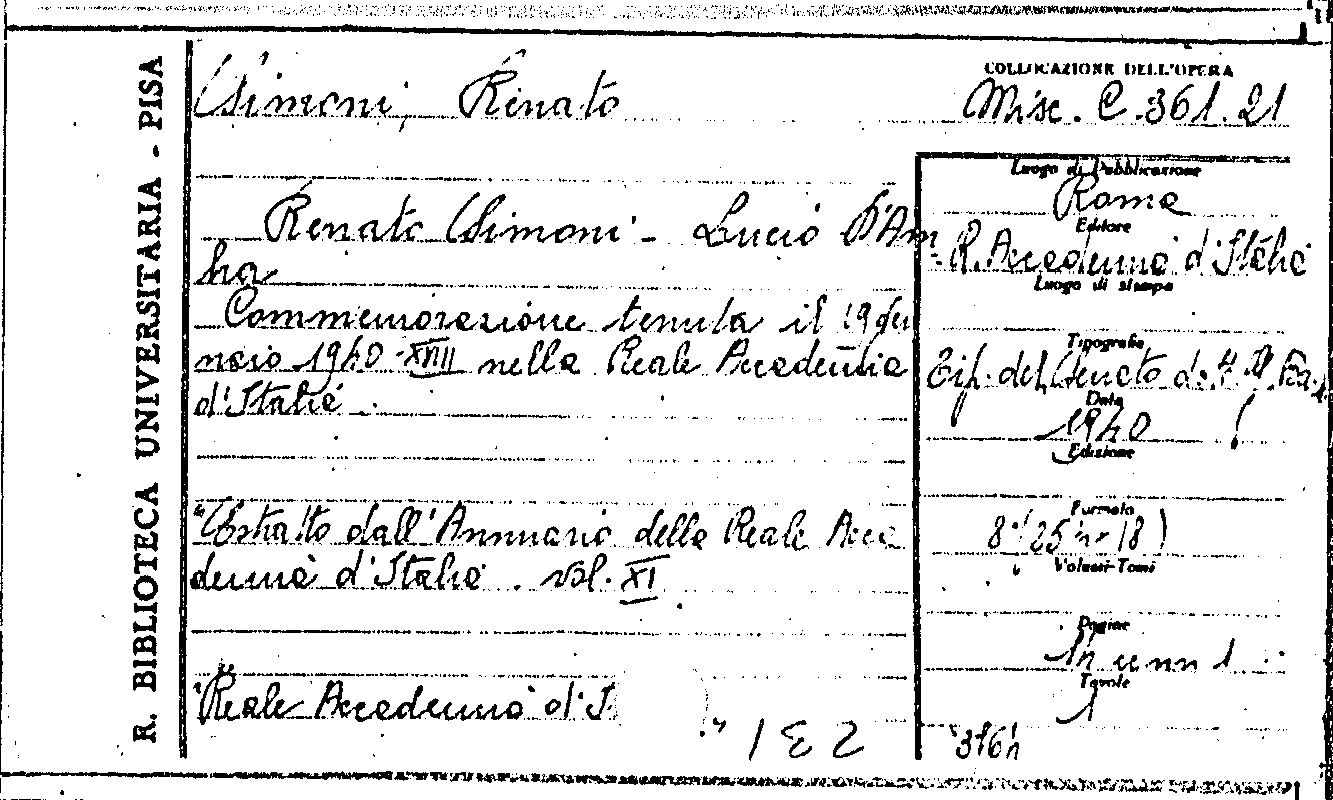 R. BIBLIOTECA UNIVERSITARIA - PISA
Simoni, Renato
COLLOCAZIONE DELL'OPERA
Misc. C. 361.21
Renato Simoni - Lucio D'Am
bra
Commemorazione tenuta il 19 gen
naio 1940-XVIII nella Reale Accademia
d'Italia.
"Estratto dall'Annuario della Reale Acca
demia d'Italia. vol. XI
Reale Accademia d'I.
" 1 E 2
Luogo di Pubblicazione
Roma
Editore
R. Accademia d'Italia
Luogo di stampa
Tipografia
Tip. del Senato d.
Data
1940
Edizione
Formato
8° (25 18)
Volumi-Tomi
Pagine
1
Tavole
1